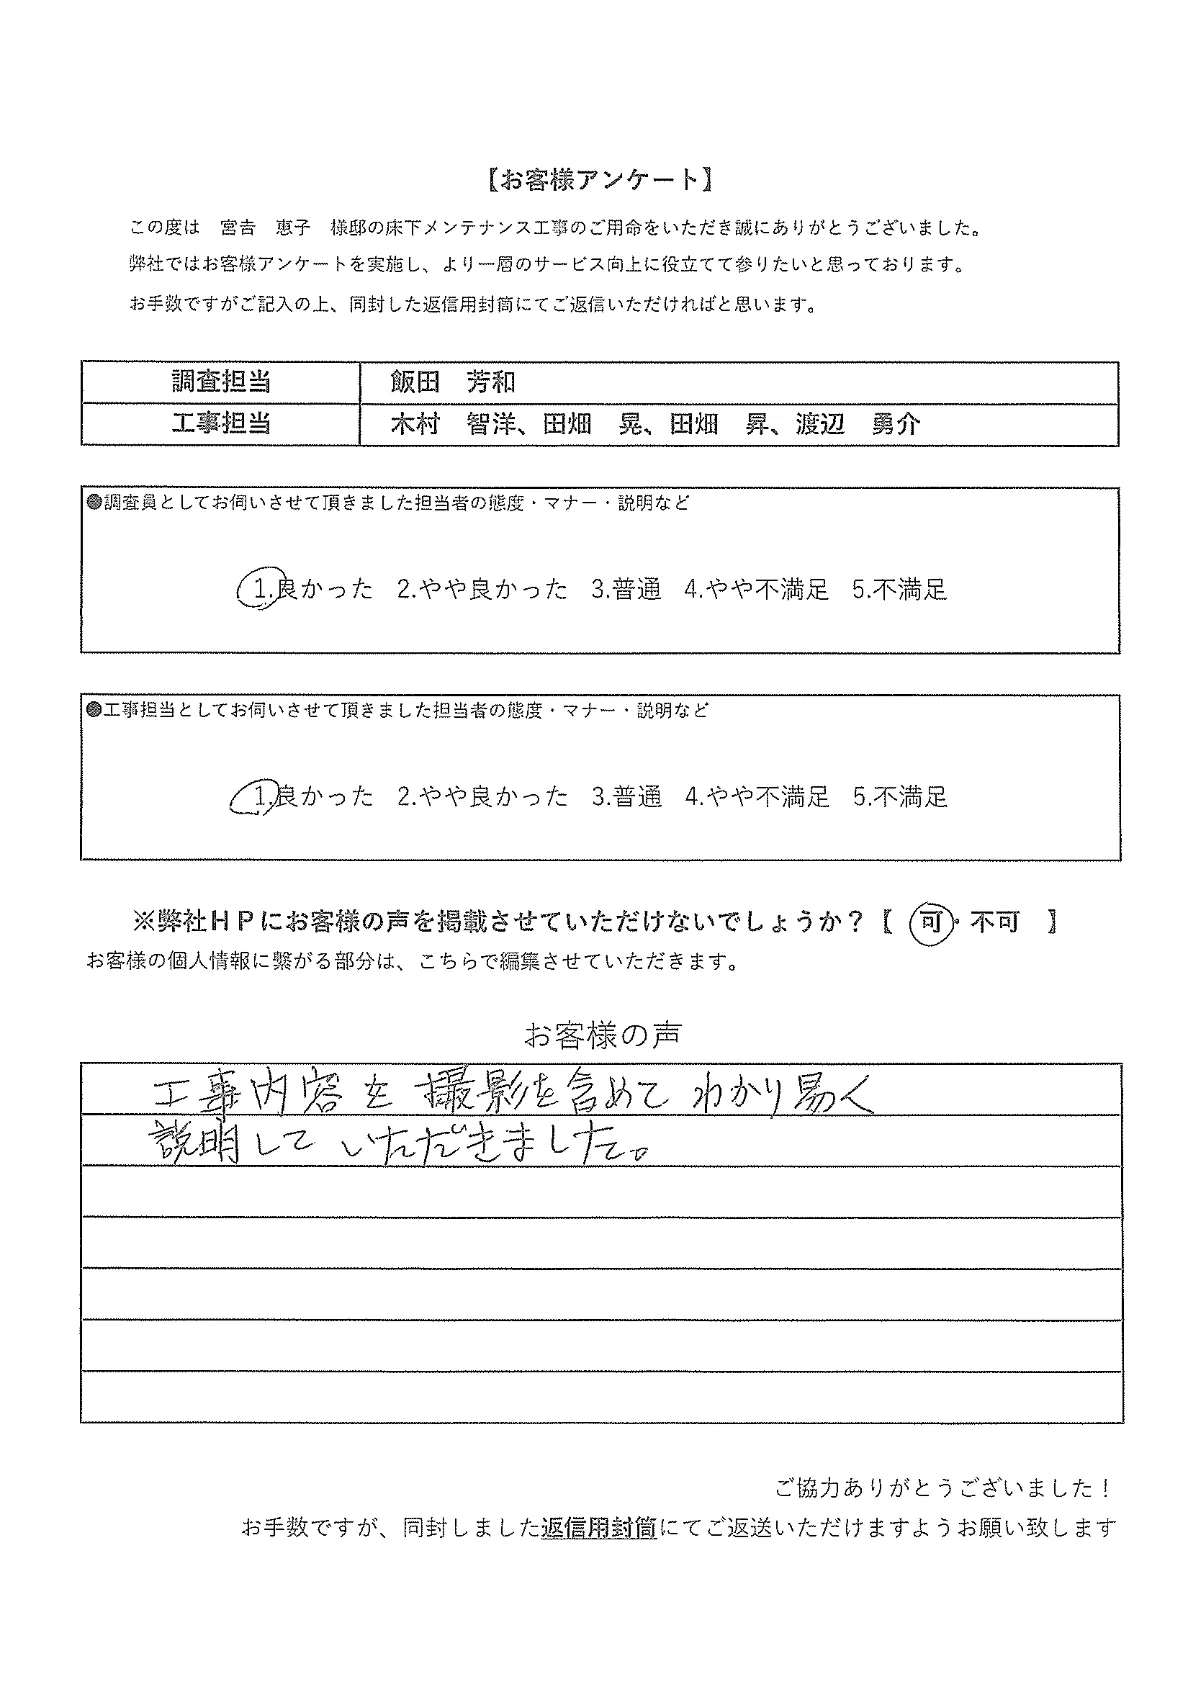 【お客様アンケート】
この度は　宮𠮷　恵子　様邸の床下メンテナンス工事のご用命をいただき誠にありがとうございました。
弊社ではお客様アンケートを実施し、より一層のサービス向上に役立てて参りたいと思っております。
お手数ですがご記入の上、同封した返信用封筒にてご返信いただければと思います。
調査担当　飯田　芳和
工事担当　木村　智洋、田畑　晃、田畑　昇、渡辺　勇介
●調査員としてお伺いさせて頂きました担当者の態度・マナー・説明など
1.良かった　2.やや良かった　3.普通　4.やや不満足　5.不満足
●工事担当としてお伺いさせて頂きました担当者の態度・マナー・説明など
1.良かった　2.やや良かった　3.普通　4.やや不満足　5.不満足
※弊社ＨＰにお客様の声を掲載させていただけないでしょうか？【　可・不可　】
お客様の個人情報に繋がる部分は、こちらで編集させていただきます。
お客様の声
工事内容を撮影を含めてわかり易く
説明していただきました。
ご協力ありがとうございました！
お手数ですが、同封しました返信用封筒にてご返送いただけますようお願い致します